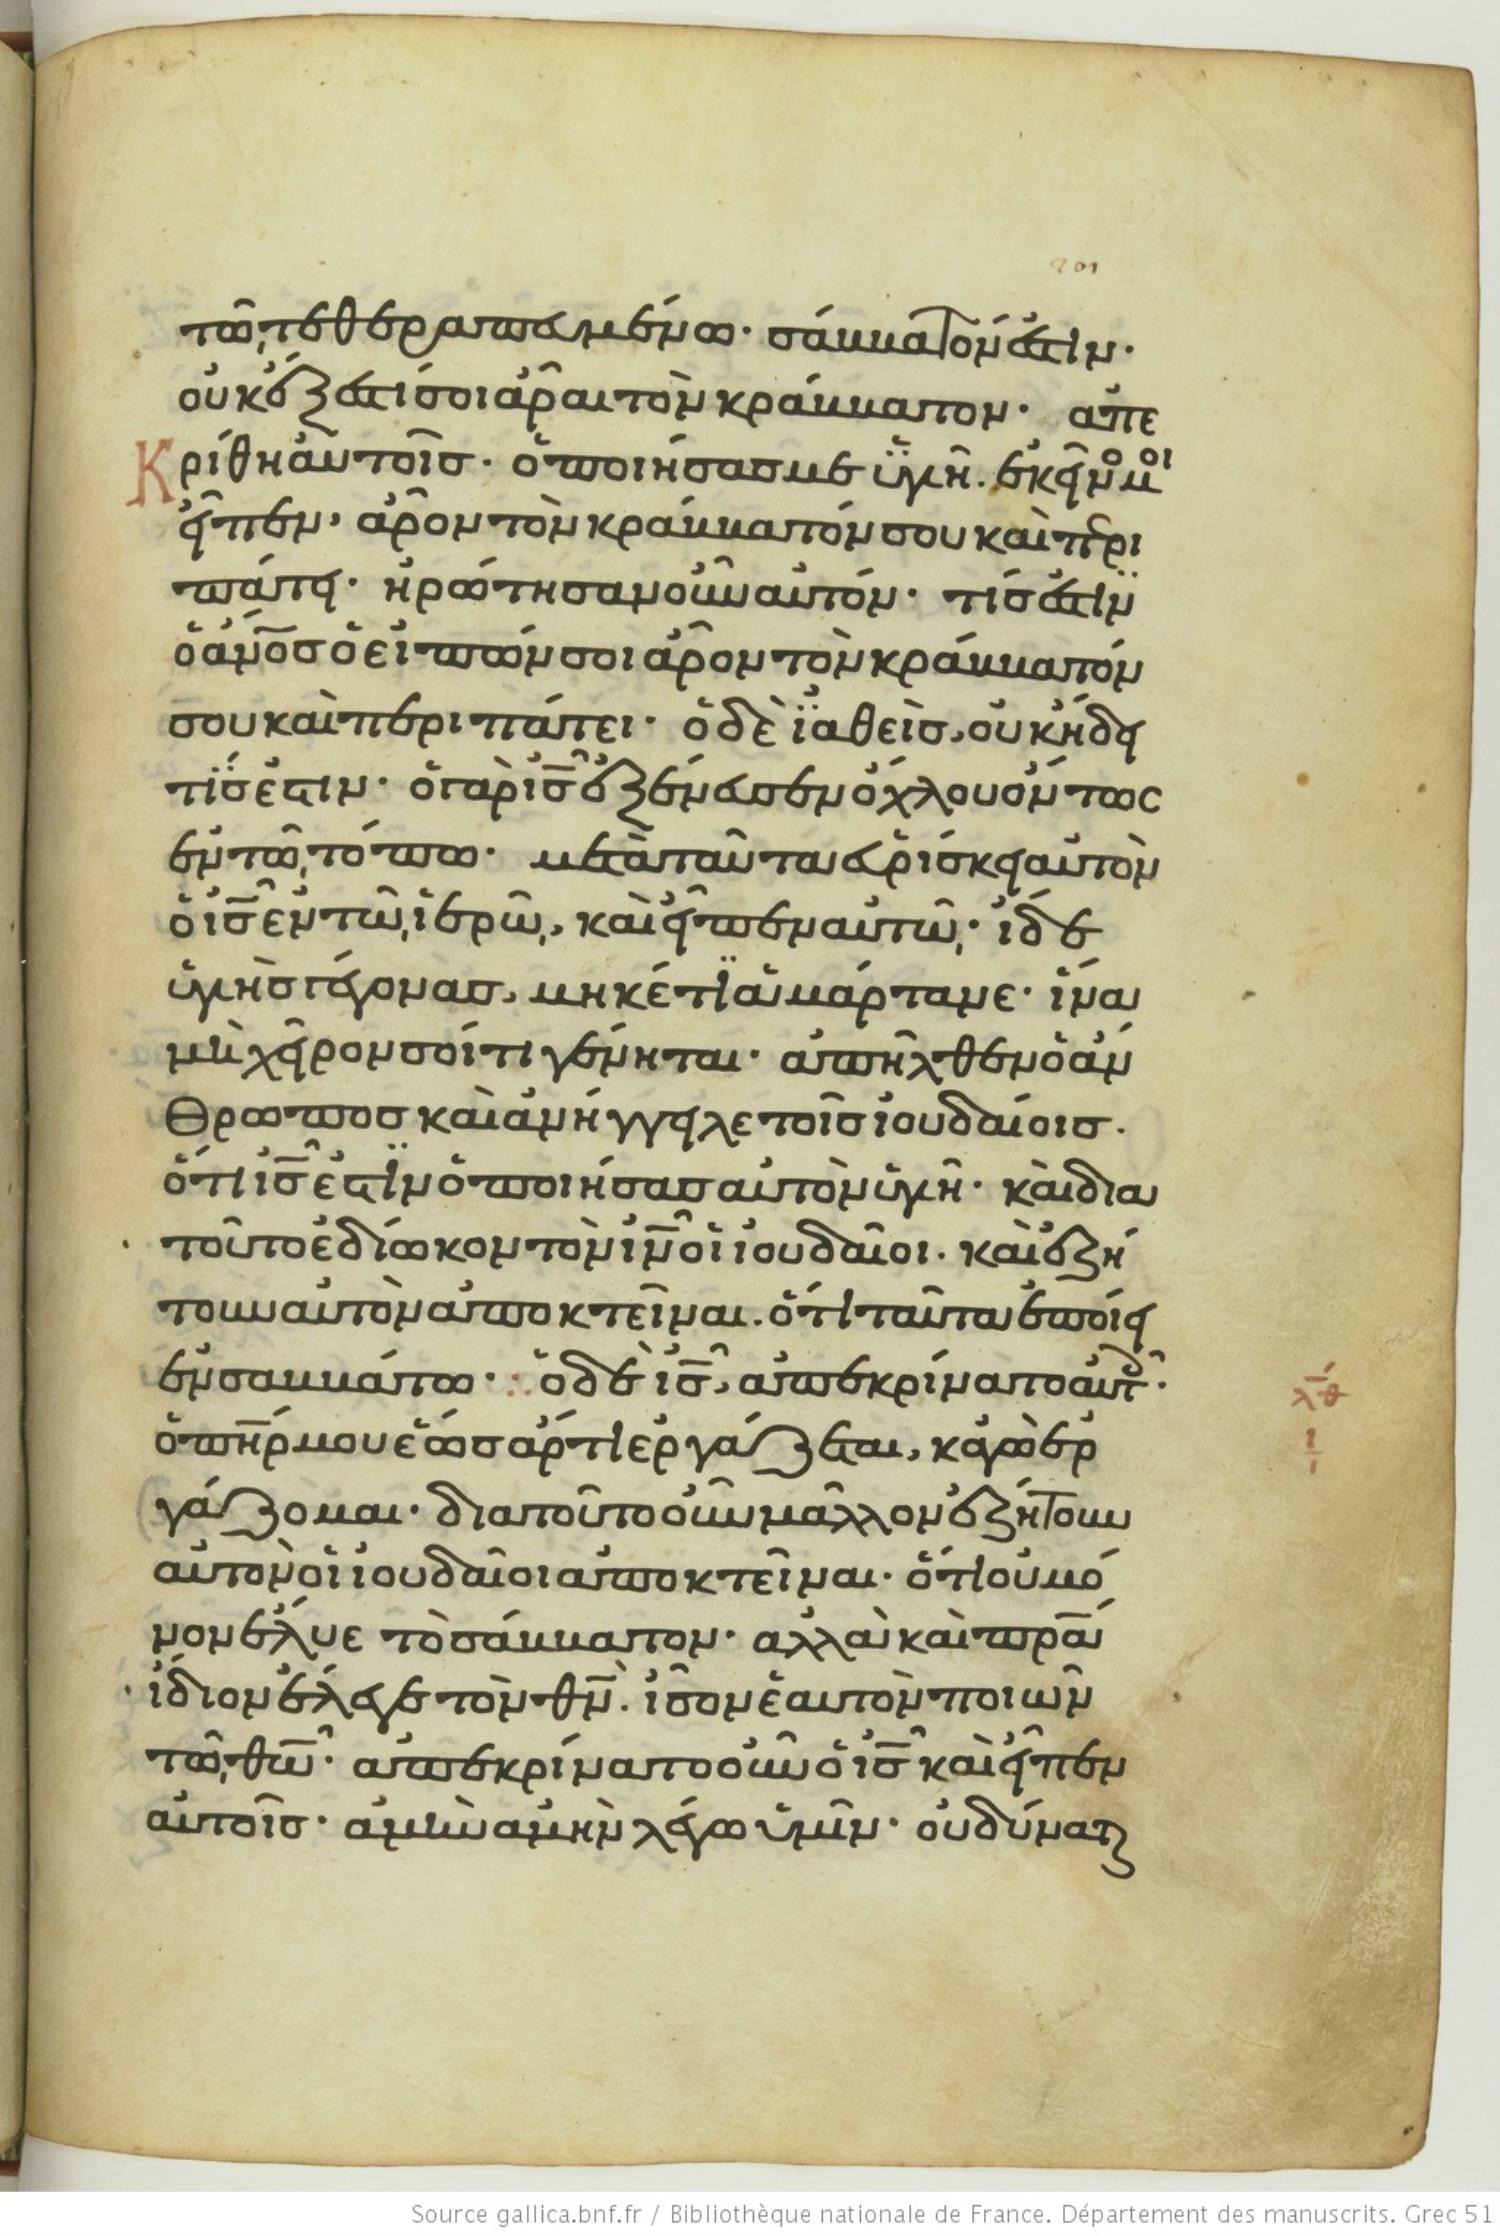 201
τῶ, τεθεραπευμένω· σάββατόν ἐστιν·
οὐκ ἔξεστί σοι ἆραι τὸν κράββατον· ἀπε
κρίθη αὐτοῖς· ὁ ποιήσας με ὑγιῆ. ἐκεῖνό μοι
εἶπεν, ἆρον τὸν κράββατόν σου καὶ περι
πάτει· ἠρώτησαν οὖν αὐτόν· τίς ἐστϊν
ὁ ἀν̅ος ὁ εἰπών σοι ἆρον τὸν κράββατόν
σου καὶ περιπάτει· ὁ δὲ ϊαθεὶς, οὐκ ἤδει
τίς ἐστιν· ὁ γὰρ ι̅ς̅ ἐξένευσεν ὄχλου ὄντος
ἐν τῶ, τόπω· μετὰ ταῦτα εὑρίσκει αὐτὸν
ὁ ι̅ς̅ ἐν τῶ, ἱερῶ,, καὶ εἶπεν αὐτῶ,· ἴδε
ὑγιὴς γέγονας, μηκέτϊ ἁμάρτανε· ἵνα
μὴ χεῖρον σοί τι γένηται· ἀπῆλθεν ὁ ἄν
θρωπος καὶ ἀνήγγειλε τοῖς ἰουδαίοις.
ὅτι ι̅ς̅ ἐστϊν ὁ ποιήσας αὐτὸν ὑγιῆ· καὶ δια
τοῦτο ἐδίωκον τὸν ι̅ν̅ οἱ ἰουδαῖοι. καὶ ἐζή
τουν αὐτὸν ἀποκτεῖναι. ὅτι ταῦτα ἐποίει
ἐν σαββάτω· ὁ δὲ ι̅ς̅, ἀπεκρίνατο αὐτοῖς·
λ̅θ̅
ὁ π̅η̅ρ μου ἕως ἄρτι ἐργάζεται, κἀγὼ ἐρ
ι
γάζομαι· διατοῦτο οὖν μᾶλλον ἐζήτουν
αὐτὸν οἱ ἰουδαῖοι ἀποκτεῖναι· ὅτι οὐ μό
νον ἔλυε τὸ σάββατον· ἀλλὰ καὶ π̅ρ̅α
ἴδιον ἔλεγε τὸν θ̅ν̅. ἶσον ἑαυτὸν ποιῶν
τῶ, θ̅ω̅· ἀπεκρίνατο οὖν ὁ ι̅ς̅ καὶ εἶπεν
αὐτοῖς· ἀμὴν ἀμὴν λέγω ὑμῖν· οὐ δύναται
Source gallica.bnf.fr / Bibliothèque nationale de France. Département des manuscrits. Grec 51